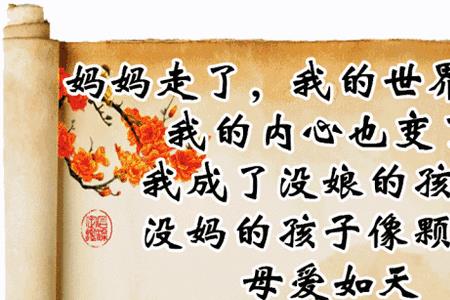 妈妈走了，我的世界
我的内心也变
我成了没娘的孩
没妈的孩子像颗
母爱如天